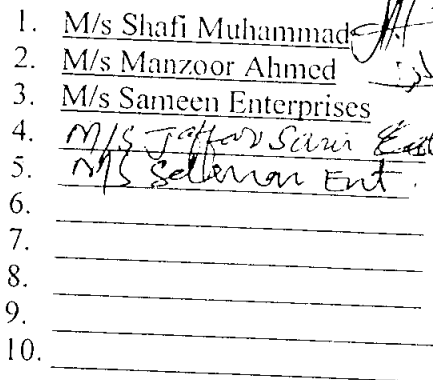 1. M/s Shafi Muhammad
2. M/s Manzoor Ahmed
3. M/s Sameen Enterprises
4. M/S Jaffar
5. M/S Ent.
6.
7.
8.
9.
10.